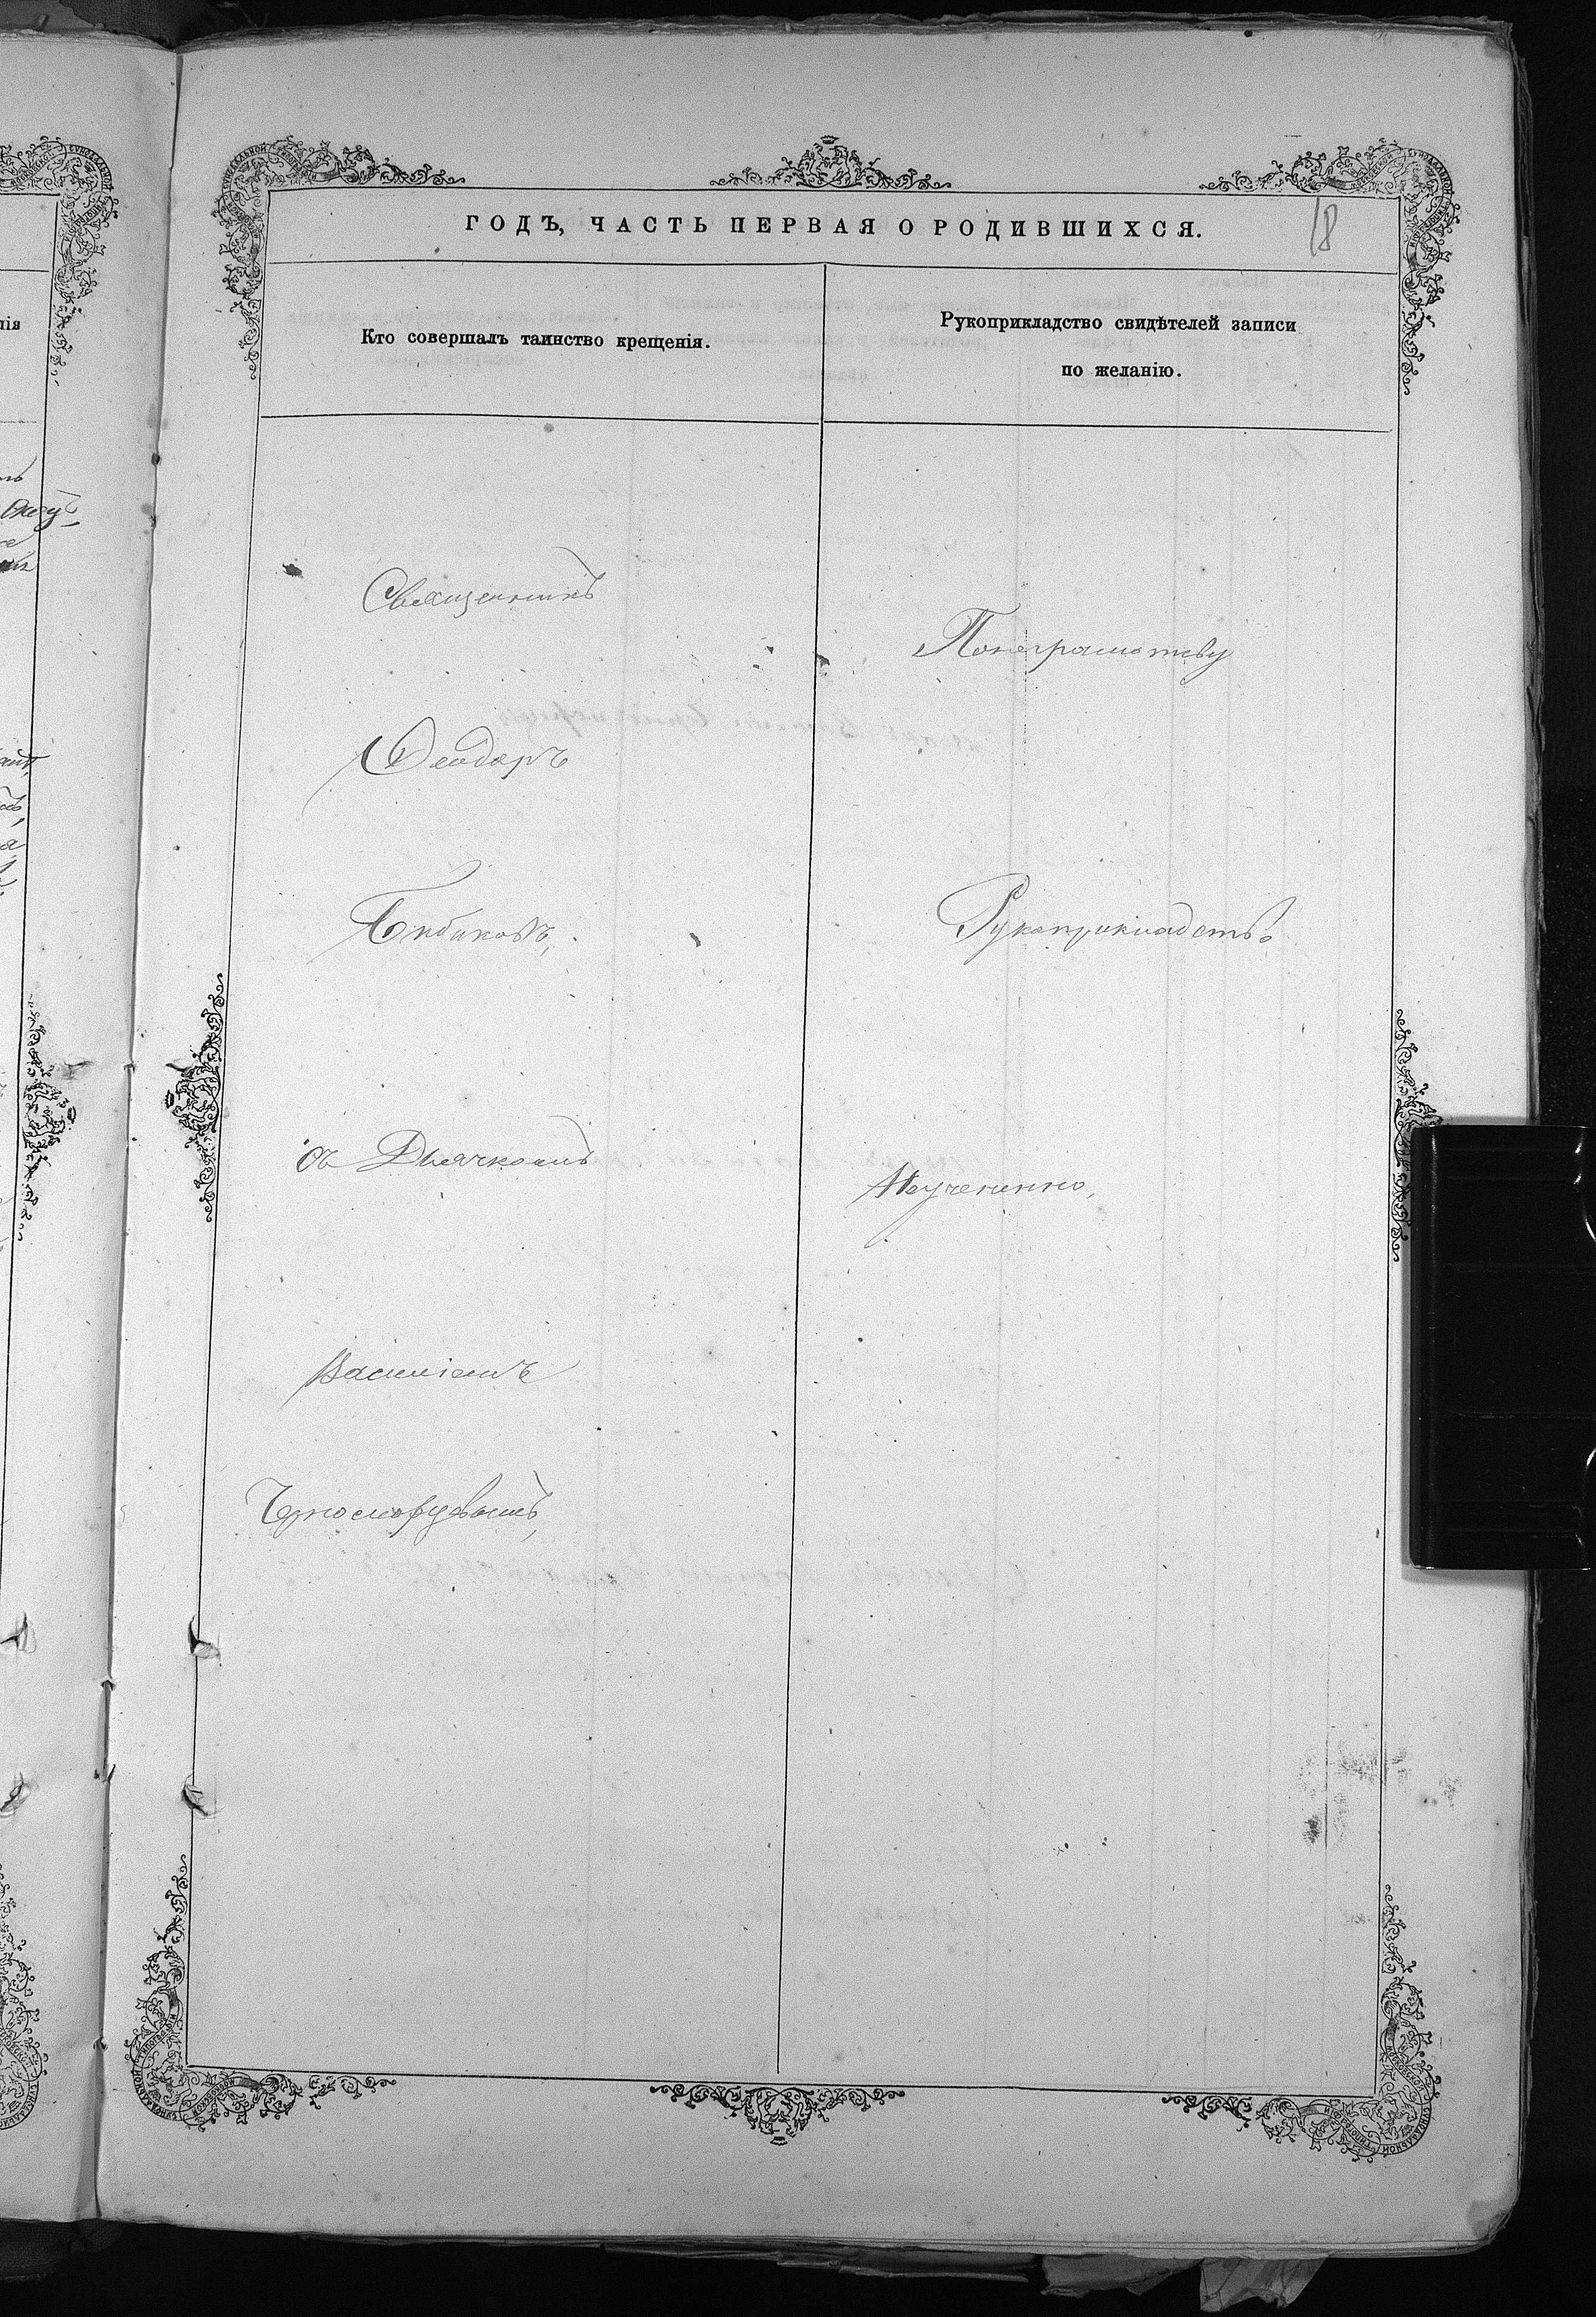 ГОДЪ, ЧАСТЬ ПЕРВАЯ О РОДИВШИХСЯ.
18
Кто совершалъ таинство крещенія.
Рукоприкладство свидѣтелей записи
по желанію.
Священникъ
Понеграмотству
Феодоръ
Бибиковъ,
Рукоприкладство
съ Дьячкомъ
Неученинно,
Василіемъ